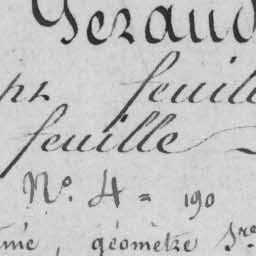 Geraud
feuill
feuille
N° 4 = 190
géomètre